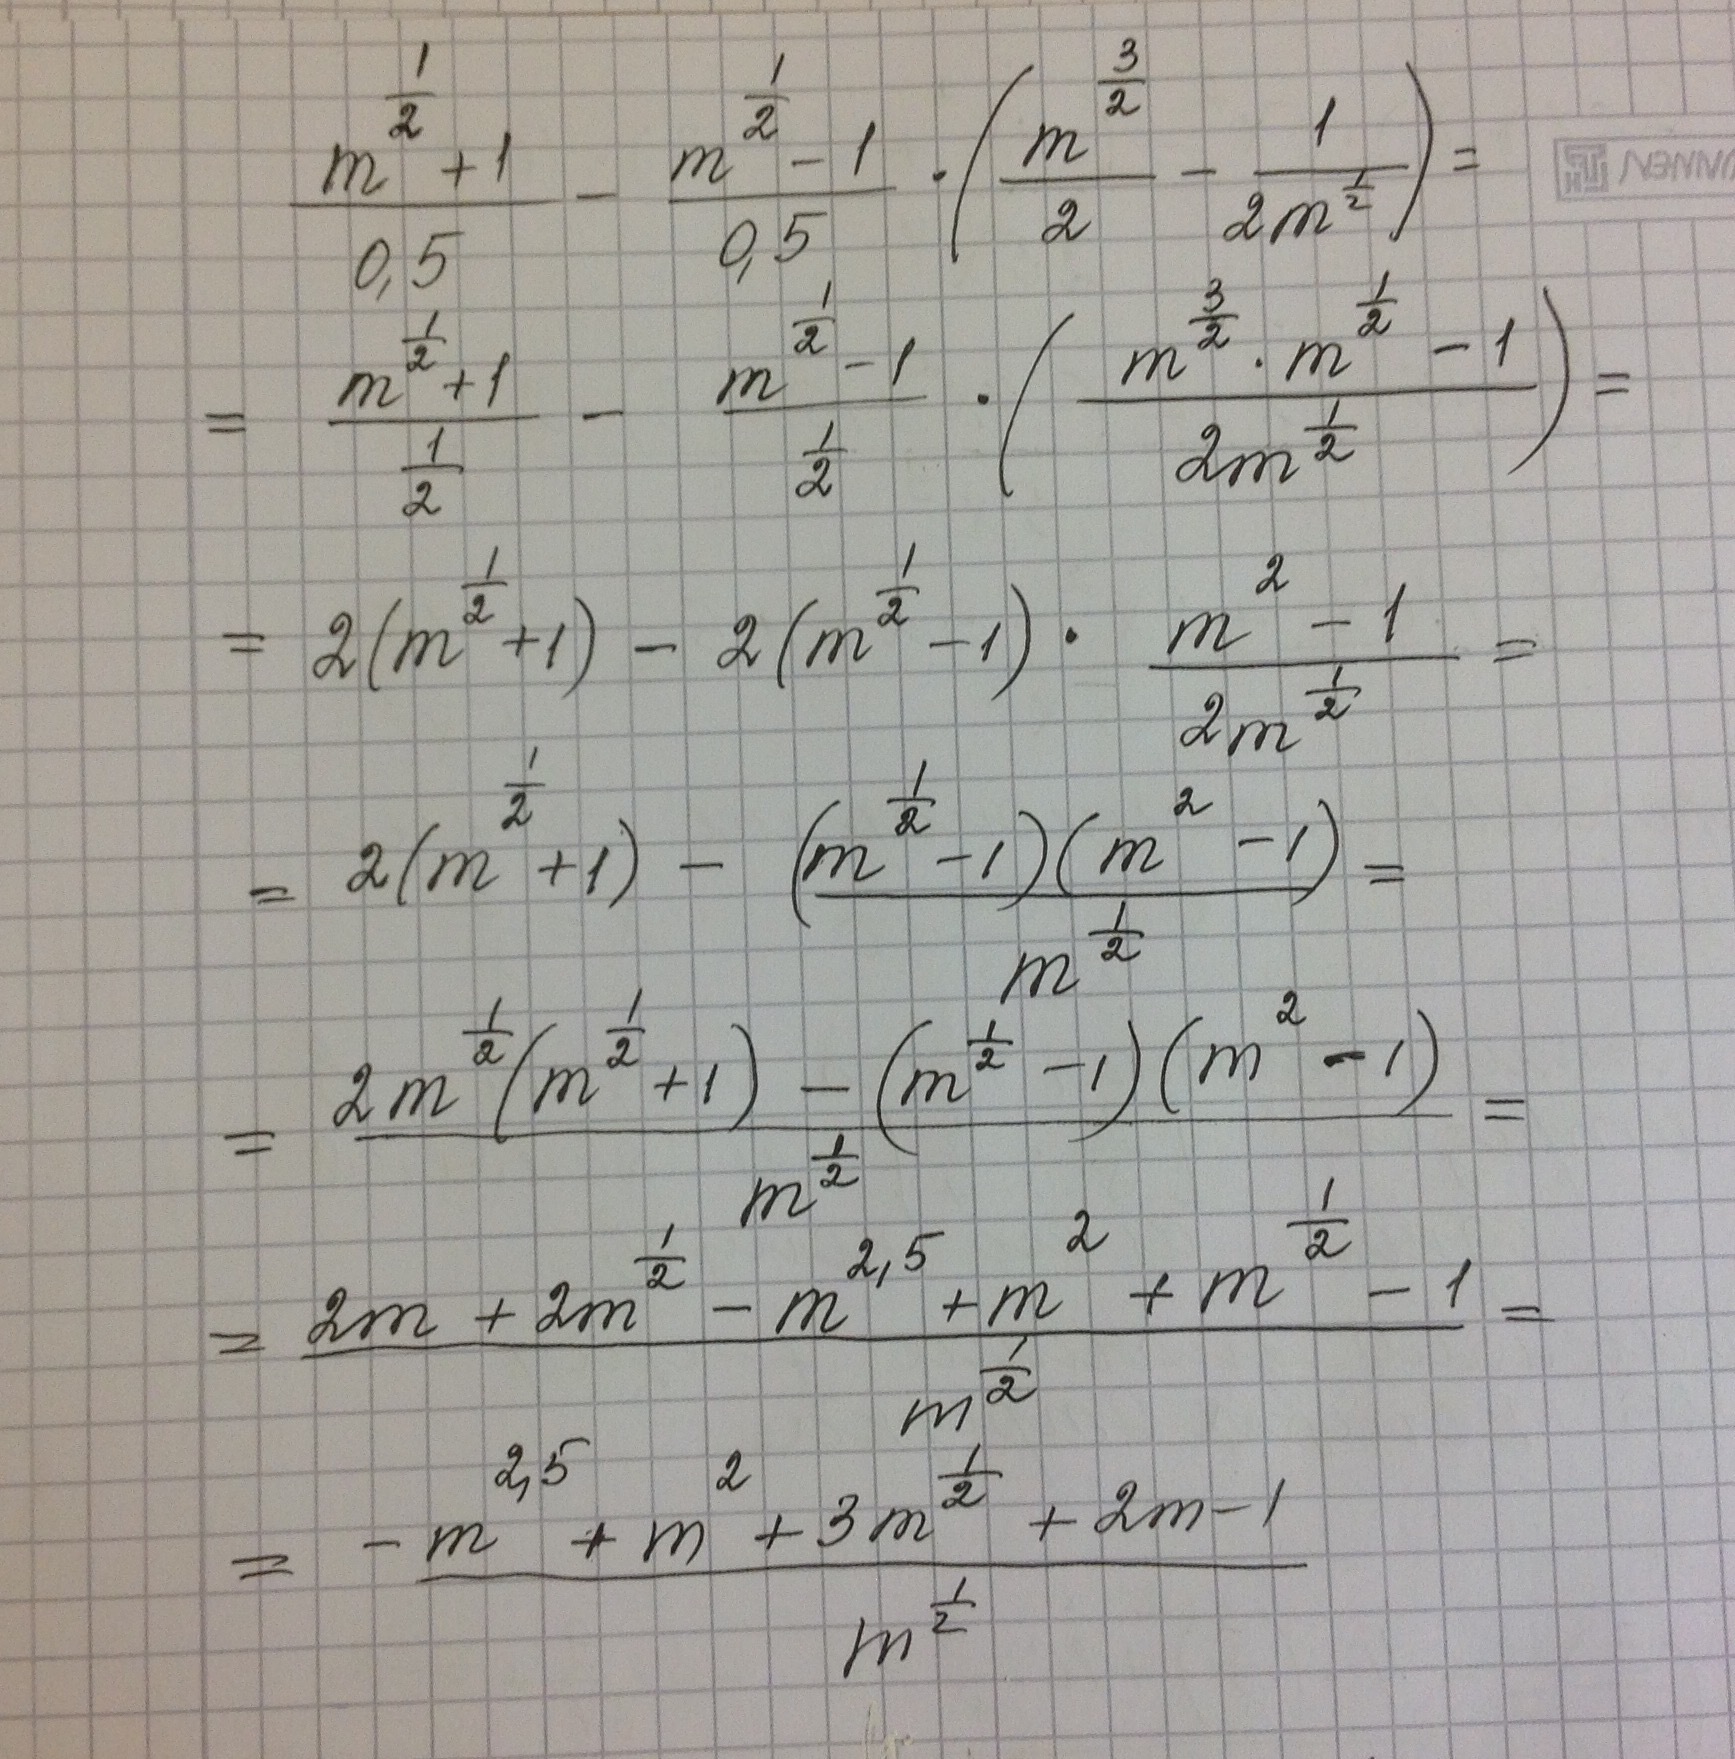 (m^(1/2) + 1)/(0,5) - (m^(1/2) - 1)/(0,5) · (m^(3/2)/2 - 1/(2m^(1/2))) =
= (m^(1/2) + 1)/(1/2) - (m^(1/2) - 1)/(1/2) · ((m^(3/2) · m^(1/2) - 1)/(2m^(1/2))) =
= 2(m^(1/2) + 1) - 2(m^(1/2) - 1) · (m^2 - 1)/(2m^(1/2)) =
= 2(m^(1/2) + 1) - ((m^(1/2) - 1)(m^2 - 1))/(m^(1/2)) =
= (2m^(1/2)(m^(1/2) + 1) - (m^(1/2) - 1)(m^2 - 1))/(m^(1/2)) =
= (2m + 2m^(1/2) - m^(2,5) + m^2 + m^(1/2) - 1)/(m^(1/2)) =
= (-m^(2,5) + m^2 + 3m^(1/2) + 2m - 1)/(m^(1/2))